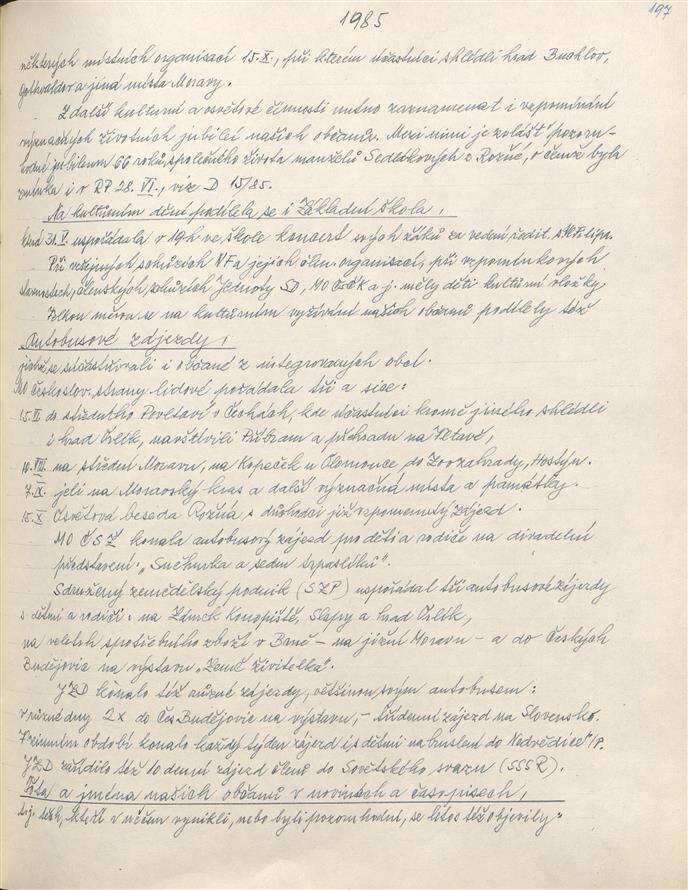 1985
197
některých místních organisací 15.X., při kterém účastníci shlédli hrad Buchlov,
Gottwaldov a jiná místa Moravy.
Z další kulturní a osvětové činnosti nutno zaznamenat i vzpomínání
význačných životních jubileí našich občanů. Mezi nimi je zvlášť pozoru-
hodné jubileum 66 roků společného života manželů Sedlákových z Rožné, o čemž byla
zmínka i v RP. 28. VI., viz D 15/85.
Na kulturním dění podílela se i Základní škola,
která 31.V. uspořádala v 19h ve škole koncert svých žáků za vedení ředit.
Při veřejných schůzích NF a jejích člen. organisací, při vzpomínkových
slavnostech, členských schůzích Jednoty SD, MO a j. měly děti kulturní vložky.
Velkou měrou se na kulturním vyžívání našich občanů podílely též
Autobusové zájezdy,
jichž se súčastňovali i občané z integrovaných obcí.
MO Českoslov. strany lidové pořádala tři a sice:
15.VI. do středního Povltaví v Čechách, kde účastníci kromě jiného shlédli
i hrad Orlík, navštívili Příbram a přehradu na Vltavě,
10.VIII. na střední Moravu, na Kopeček u Olomouce do Zoozahrady, Hostýn.
7.IX. jeli na Moravský kras a další význačná místa a památky.
15.X Osvětová beseda Rožná s důchodci již vzpomenutý zájezd.
MO ČSŽ konala autobusový zájezd pro děti a rodiče na divadelní
představení: „Sněhurka a sedm trpaslíků".
Sdružený zemědělský podnik (SZP) uspořádal tři autobusové zájezdy
s dětmi a rodiči: na Zámek Konopiště, Slapy a hrad Orlík,
na veletrh spotřebního zboží v Brně – na jižní Moravu – a do Českých
Budějovic na výstavu „Země živitelka".
JZD konalo též různé zájezdy, většinou svým autobusem:
v různé dny 2x do Čes. Budějovic na výstavu, – týdenní zájezd na Slovensko.
V zimním období konalo každý týden zájezd i s dětmi na bruslení do Nedvědice/P.
JZD zařídilo též 10 denní zájezd členů do Sovětského svazu (SSSR).
a jména našich občanů v novinách a časopisech,
těch, kteří v něčem vynikli, nebo byli pozoruhodní, se letos též objevily: